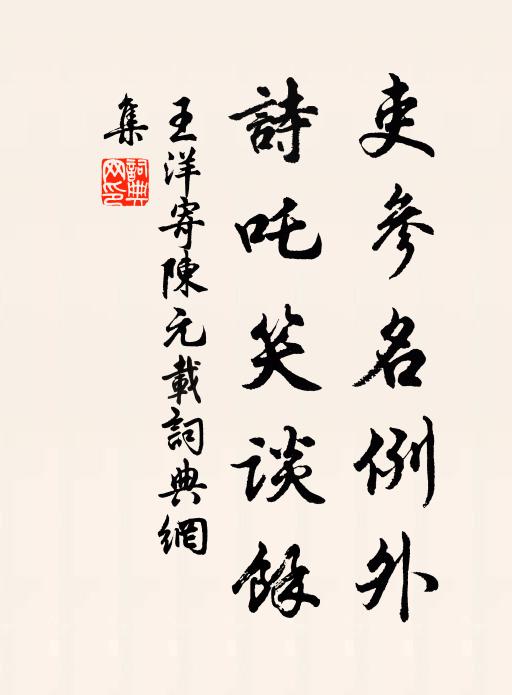 吏參名例外
詩吒笑談餘
王洋寄陳元載詞典網
集
詞典
網印